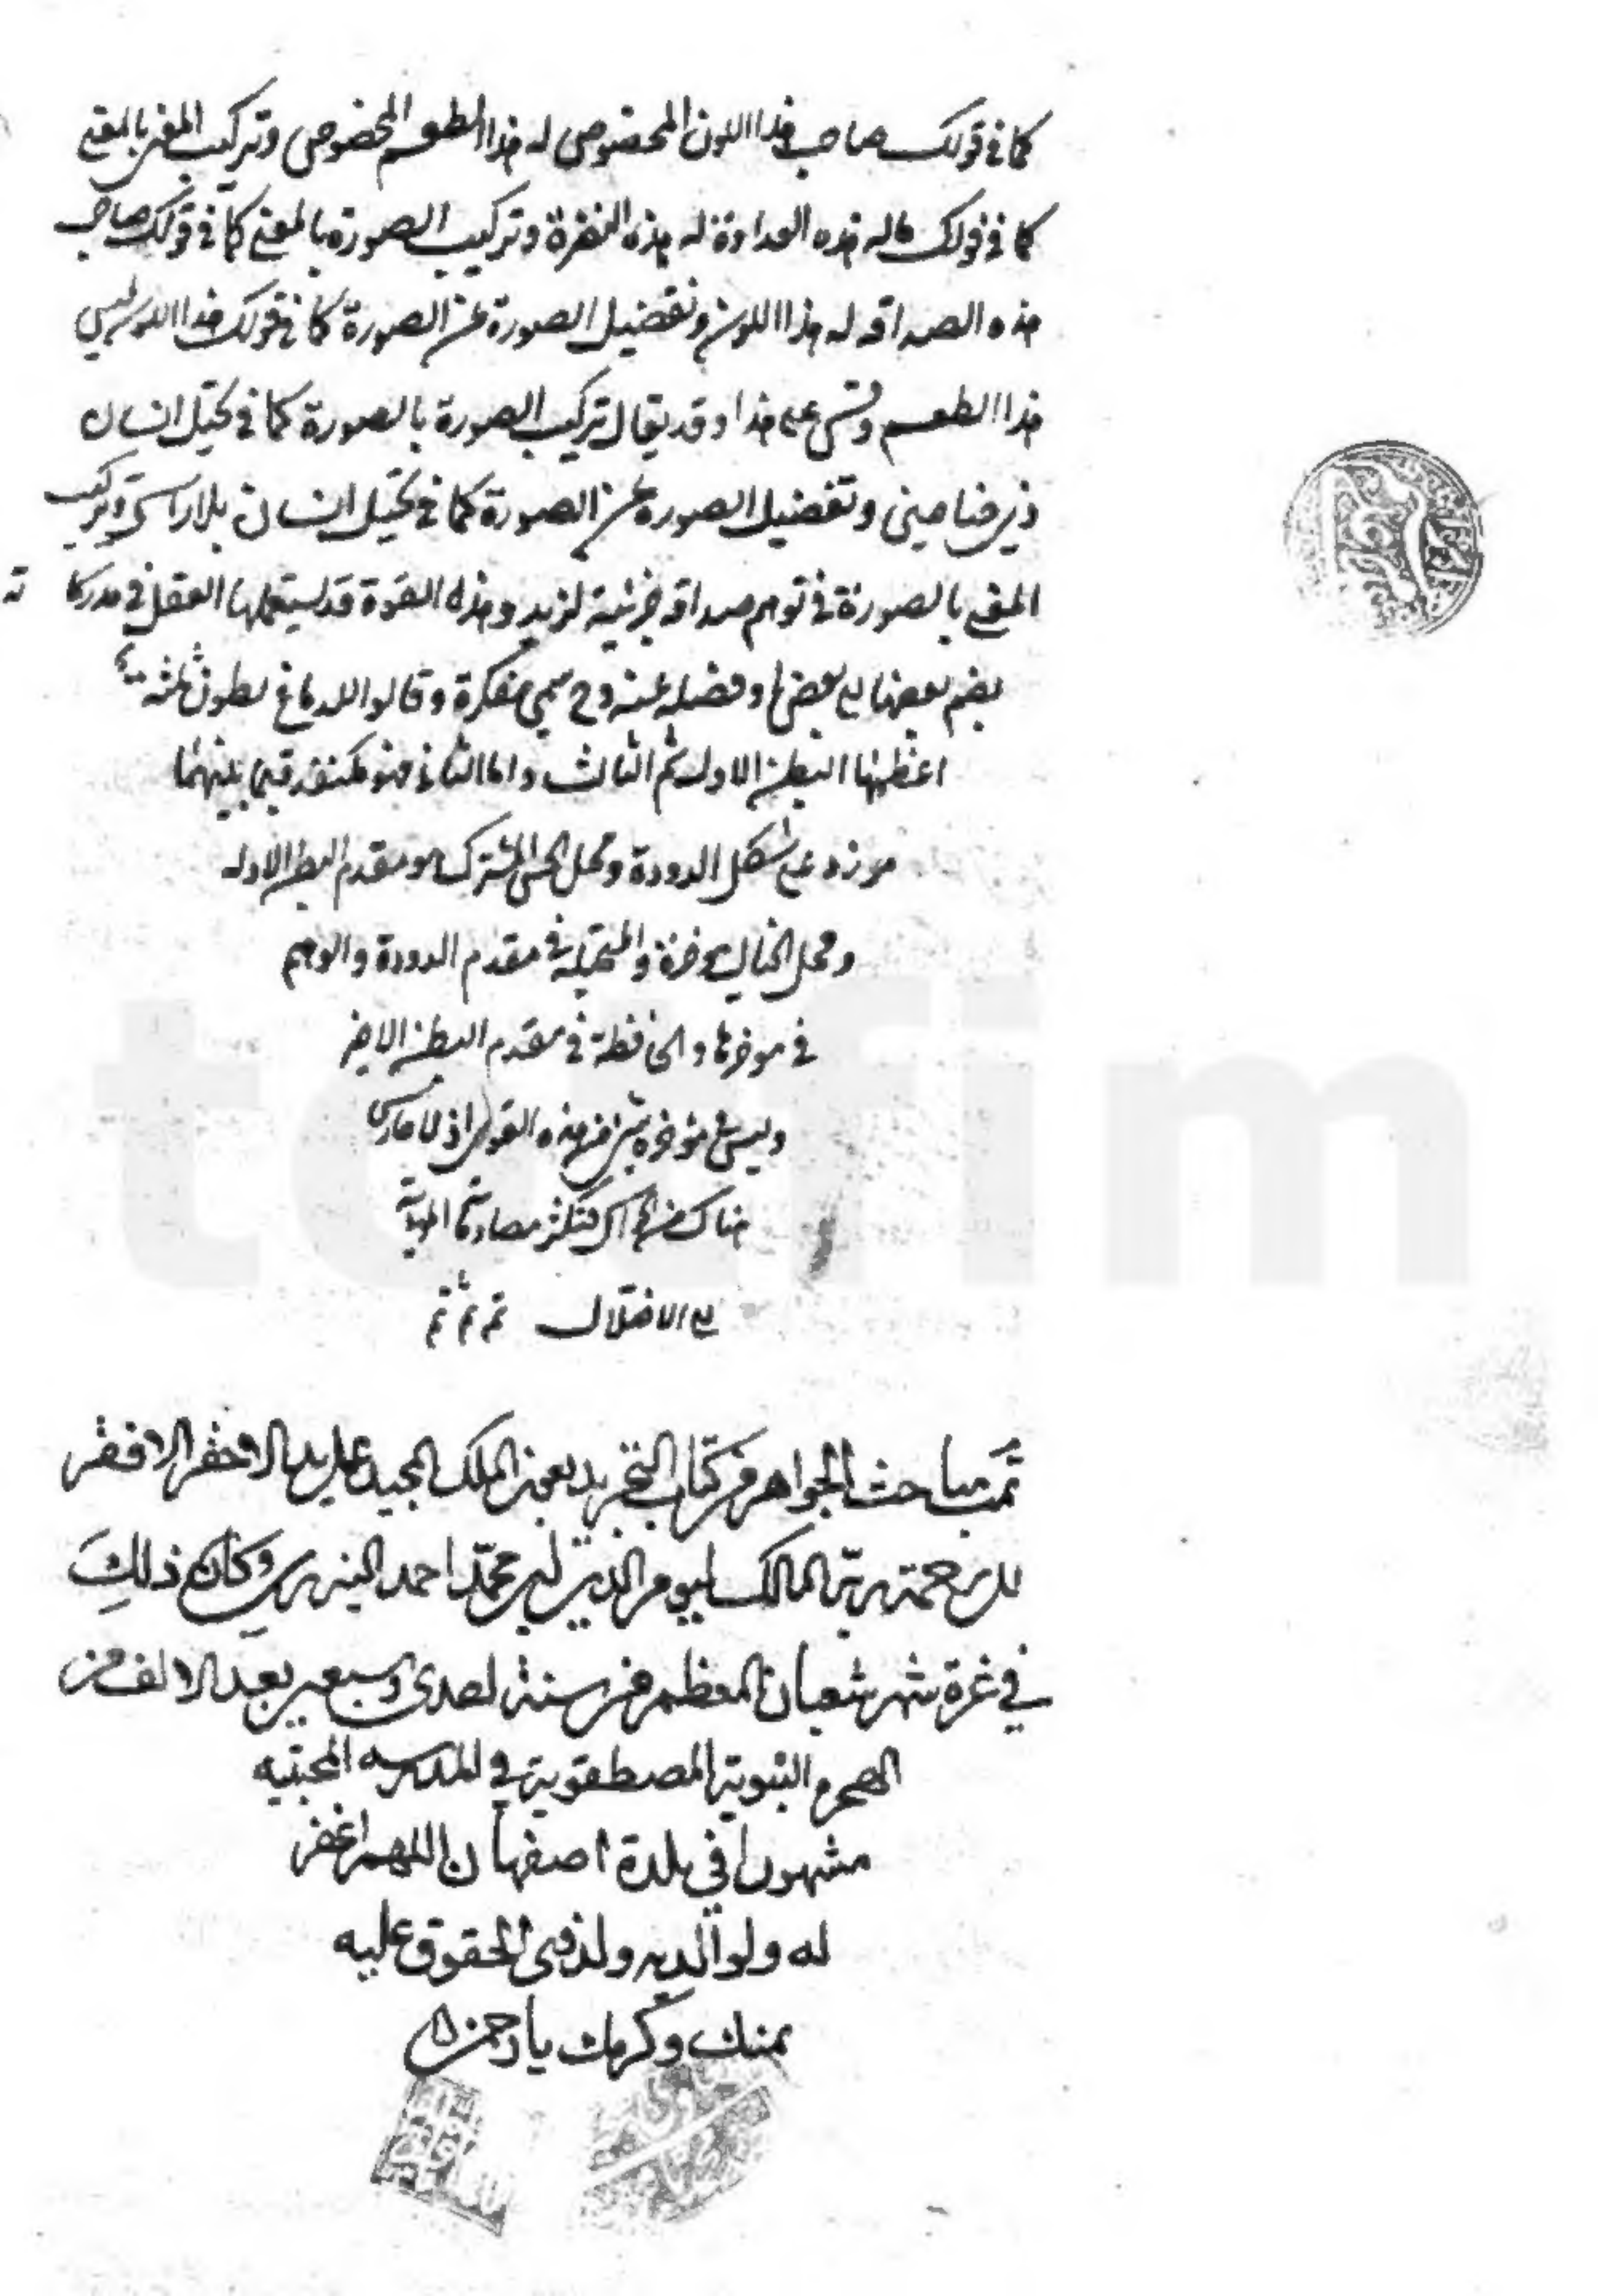 كما في قولك صاحب هذا اللون المخصوص له هذا الطعم المخصوص وتركيب المعنى بالمعنى
كما في قولك ماله هذه العداوة له هذه النفرة وتركيب الصورة بالمعنى كما في قولك صاحب
هذه الصداقة له هذا اللون وتفصيل الصورة عن الصورة كما في قولك هذا اللون ليس
هذا الطعم وقس على هذا وقد يقال تركيب الصورة بالصورة كما في تخيل انسان
ذي جناحين وتفصيل الصورة عن الصورة كما في تخيل انسان بلا راس وتركيب
المعنى بالصورة في توهم صداقة جزئية لزيد وهذه القوة قد يستعملها العقل في مدركاته
بضم بعضها الى بعض او فصله عنه وح يسمى مفكرة وقالوا للدماغ بطون ثلثة
اعظمها البطن الاول ثم الثالث واما الثاني فهو كمنفذ فيما بينهما
مزرد على شكل الدودة ومحل الحس المشترك هو مقدم البطن الاول
ومحل الخيال موخره والمتخيلة في مقدم الدودة والوهم
في موخرها والحافظة في مقدم البطن الاخير
وليس في موخره شيء من هذه القوى اذ لا حارس
هناك من الحواس فتكثر مصادماته المودية
الى الاختلال تم تم تم
تمت مباحث الجواهر من كتاب التجريد بعون الملك المجيد على يد الاحقر الافقر
رحمة ربه المالك ليوم الدين ابن محمد احمد وكان ذلك
في غرة شهر شعبان المعظم من سنة احدى وسبعين بعد الالف من
الهجرة النبوية المصطفوية في المدرسه
مشهور في بلدة اصفهان اللهم اغفر
له ولوالديه ولذوي الحقوق عليه
بمنك وكرمك يا رحمن
totfim